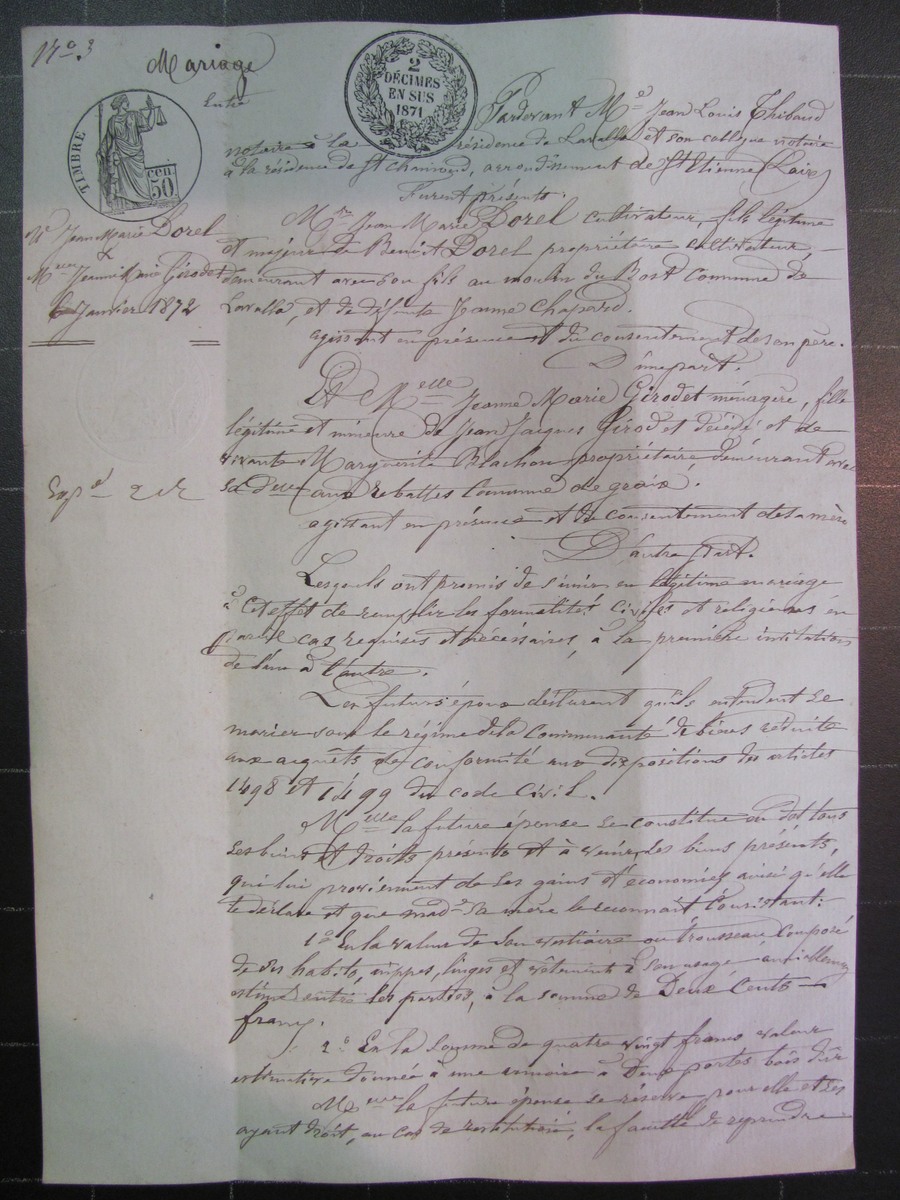 N° 3
Mariage
Entre
TIMBRE
cen. 50
2
DÉCIMES
EN SUS
1871
Mr Jean Marie Dorel
&
Melle Jeanne Marie Girodet
Janvier 1872
Expé
Pardevant Me Jean Louis Thibaud
notaire à la résidence de Lavalla et son collègue notaire
à la résidence de St Chamond, arrondissement de St Etienne (Loire)
Furent présents.
Mr Jean Marie Dorel cultivateur, fils légitime
et majeur de Benoit Dorel propriétaire cultivateur
demeurant avec son fils au moulin du Bost commune de
Lavalla, et de défunte Jeanne Chaperod.
agissant en présence et du consentement de son père.
D'une part.
Et Melle Jeanne Marie Girodet ménagère, fille
légitime et mineure de Jean Jacques Girodet décédé et de
vivante Marguerite Blachon propriétaire demeurant avec
sa dlle aux commune de
agissant en présence et de consentement de sa mère
D'autre part.
Lesquels ont promis de s'unir en légitime mariage
à cet effet de remplir les formalités civiles et religieuses en
pareil cas requises et nécessaires, à la première invitation
de l'un à l'autre.
Les futurs époux déclarent qu'ils entendent se
marier sous le régime de la Communauté de biens réduite
aux acquêts de conformité aux dispositions des articles
1498 et 1499 du code Civil.
Melle la future épouse se constitue en dot tous
ses biens et droits présents et à venir, les biens présents,
qui lui proviennent de ses gains et économies ainsi qu'elle
le déclare et que made sa mère le reconnait consistant:
1° En la valeur de son vestiaire ou trousseau, composé
de ses habits, nippes, linges et vêtements à son usage, amiablement
estimé entre les parties, à la somme de Deux Cents
francs.
2° En la somme de quatre vingt francs valeur
estimative donnée à une armoire à Deux portes bois dur
Melle la future épouse se réserve pour elle et ses
ayant droit, au cas de restitution, la faculté de reprendre